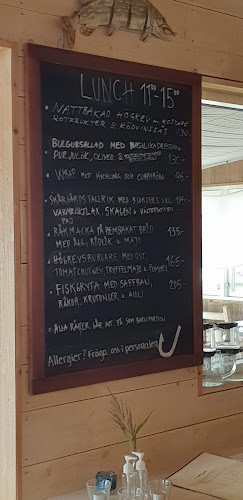 LUNCH 11⁰⁰-15⁰⁰
• NATTBAKAD HÖGREV MED ROSTADE
ROTFRUKTER & RÖDVINSSÅS 130,-
BULGURSALLAD MED BASILIKADRESSING
PURJULÖK, OLIVER & 130,-
• WRAP MED KYCKLING OCH 95,-
• SKÄRGÅRDSTALLRIK MED 3 SORTERS SILL 195,-
VARMRÖKT LAX, SKAGEN & VÄSTERBOTTEN
PAJ
• RÄKMACKA PÅ HEMBAKAT BRÖD 135,-
MED ÄGG, RÖDLÖK & MAJO
• HÖGREVSBURGARE MED OST, 165,-
TOMATCHUTNEY, TRYFFELMAJO & POMMES
• FISKGRYTA MED SAFFRAN, 205,-
RÄKOR, KRUTONGER & AIOLI
• ALLA RÄTTER GÅR ATT FÅ SOM BARNPORTION
Allergier? Fråga oss i personalen